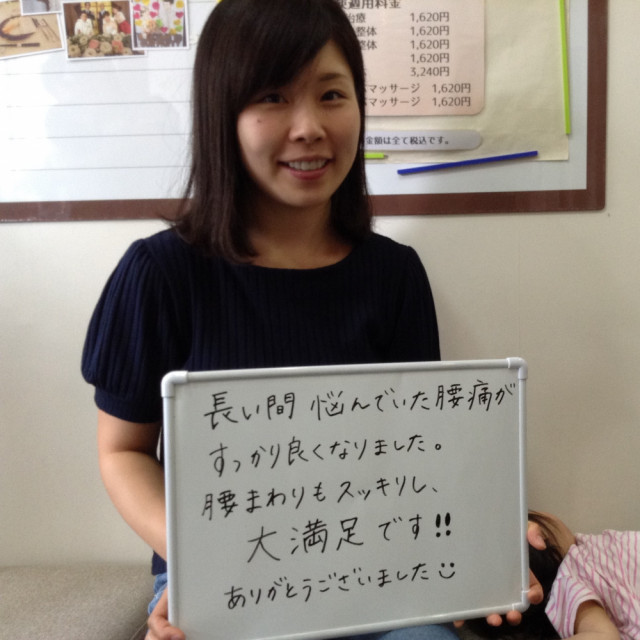 適用料金
治療 1,620円
整体 1,620円
体 1,620円
1,620円
3,240円
マッサージ 1,620円
マッサージ 1,620円
金額は全て税込です。
長い間 悩んでいた腰痛が
すっかり良くなりました。
腰まわりもスッキリし、
大満足です!!
ありがとうございました